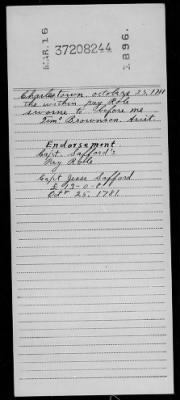 MAR. 16
37208244
1896.
Charlestown october 25, 1781
the within pay Role
sworne to before me
Tim° Brownson Asist.
Endorsement
Capt. Safford's
Pay Rolle
Capt Jesse Safford
£ 93-0-0
Octr 25. 1781.